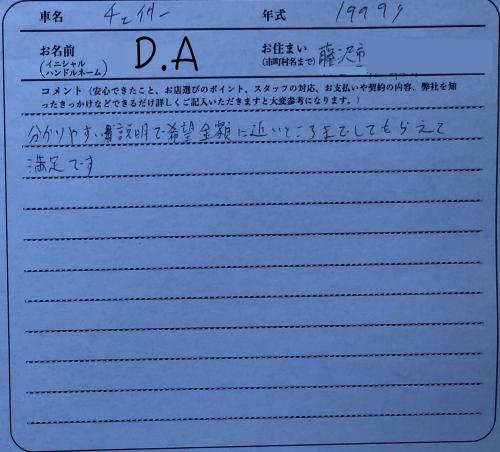 車名 チェイサー 年式 1999年
お名前 (イニシャル ハンドルネーム) D.A お住まい (市町村名まで) 藤沢市
コメント（安心できたこと、お店選びのポイント、スタッフの対応、お支払いや契約の内容、弊社を知
ったきっかけなどできるだけ詳しくご記入いただきますと大変参考になります。）
分かりやすい説明で希望金額に近いところまでしてもらえて
満足です